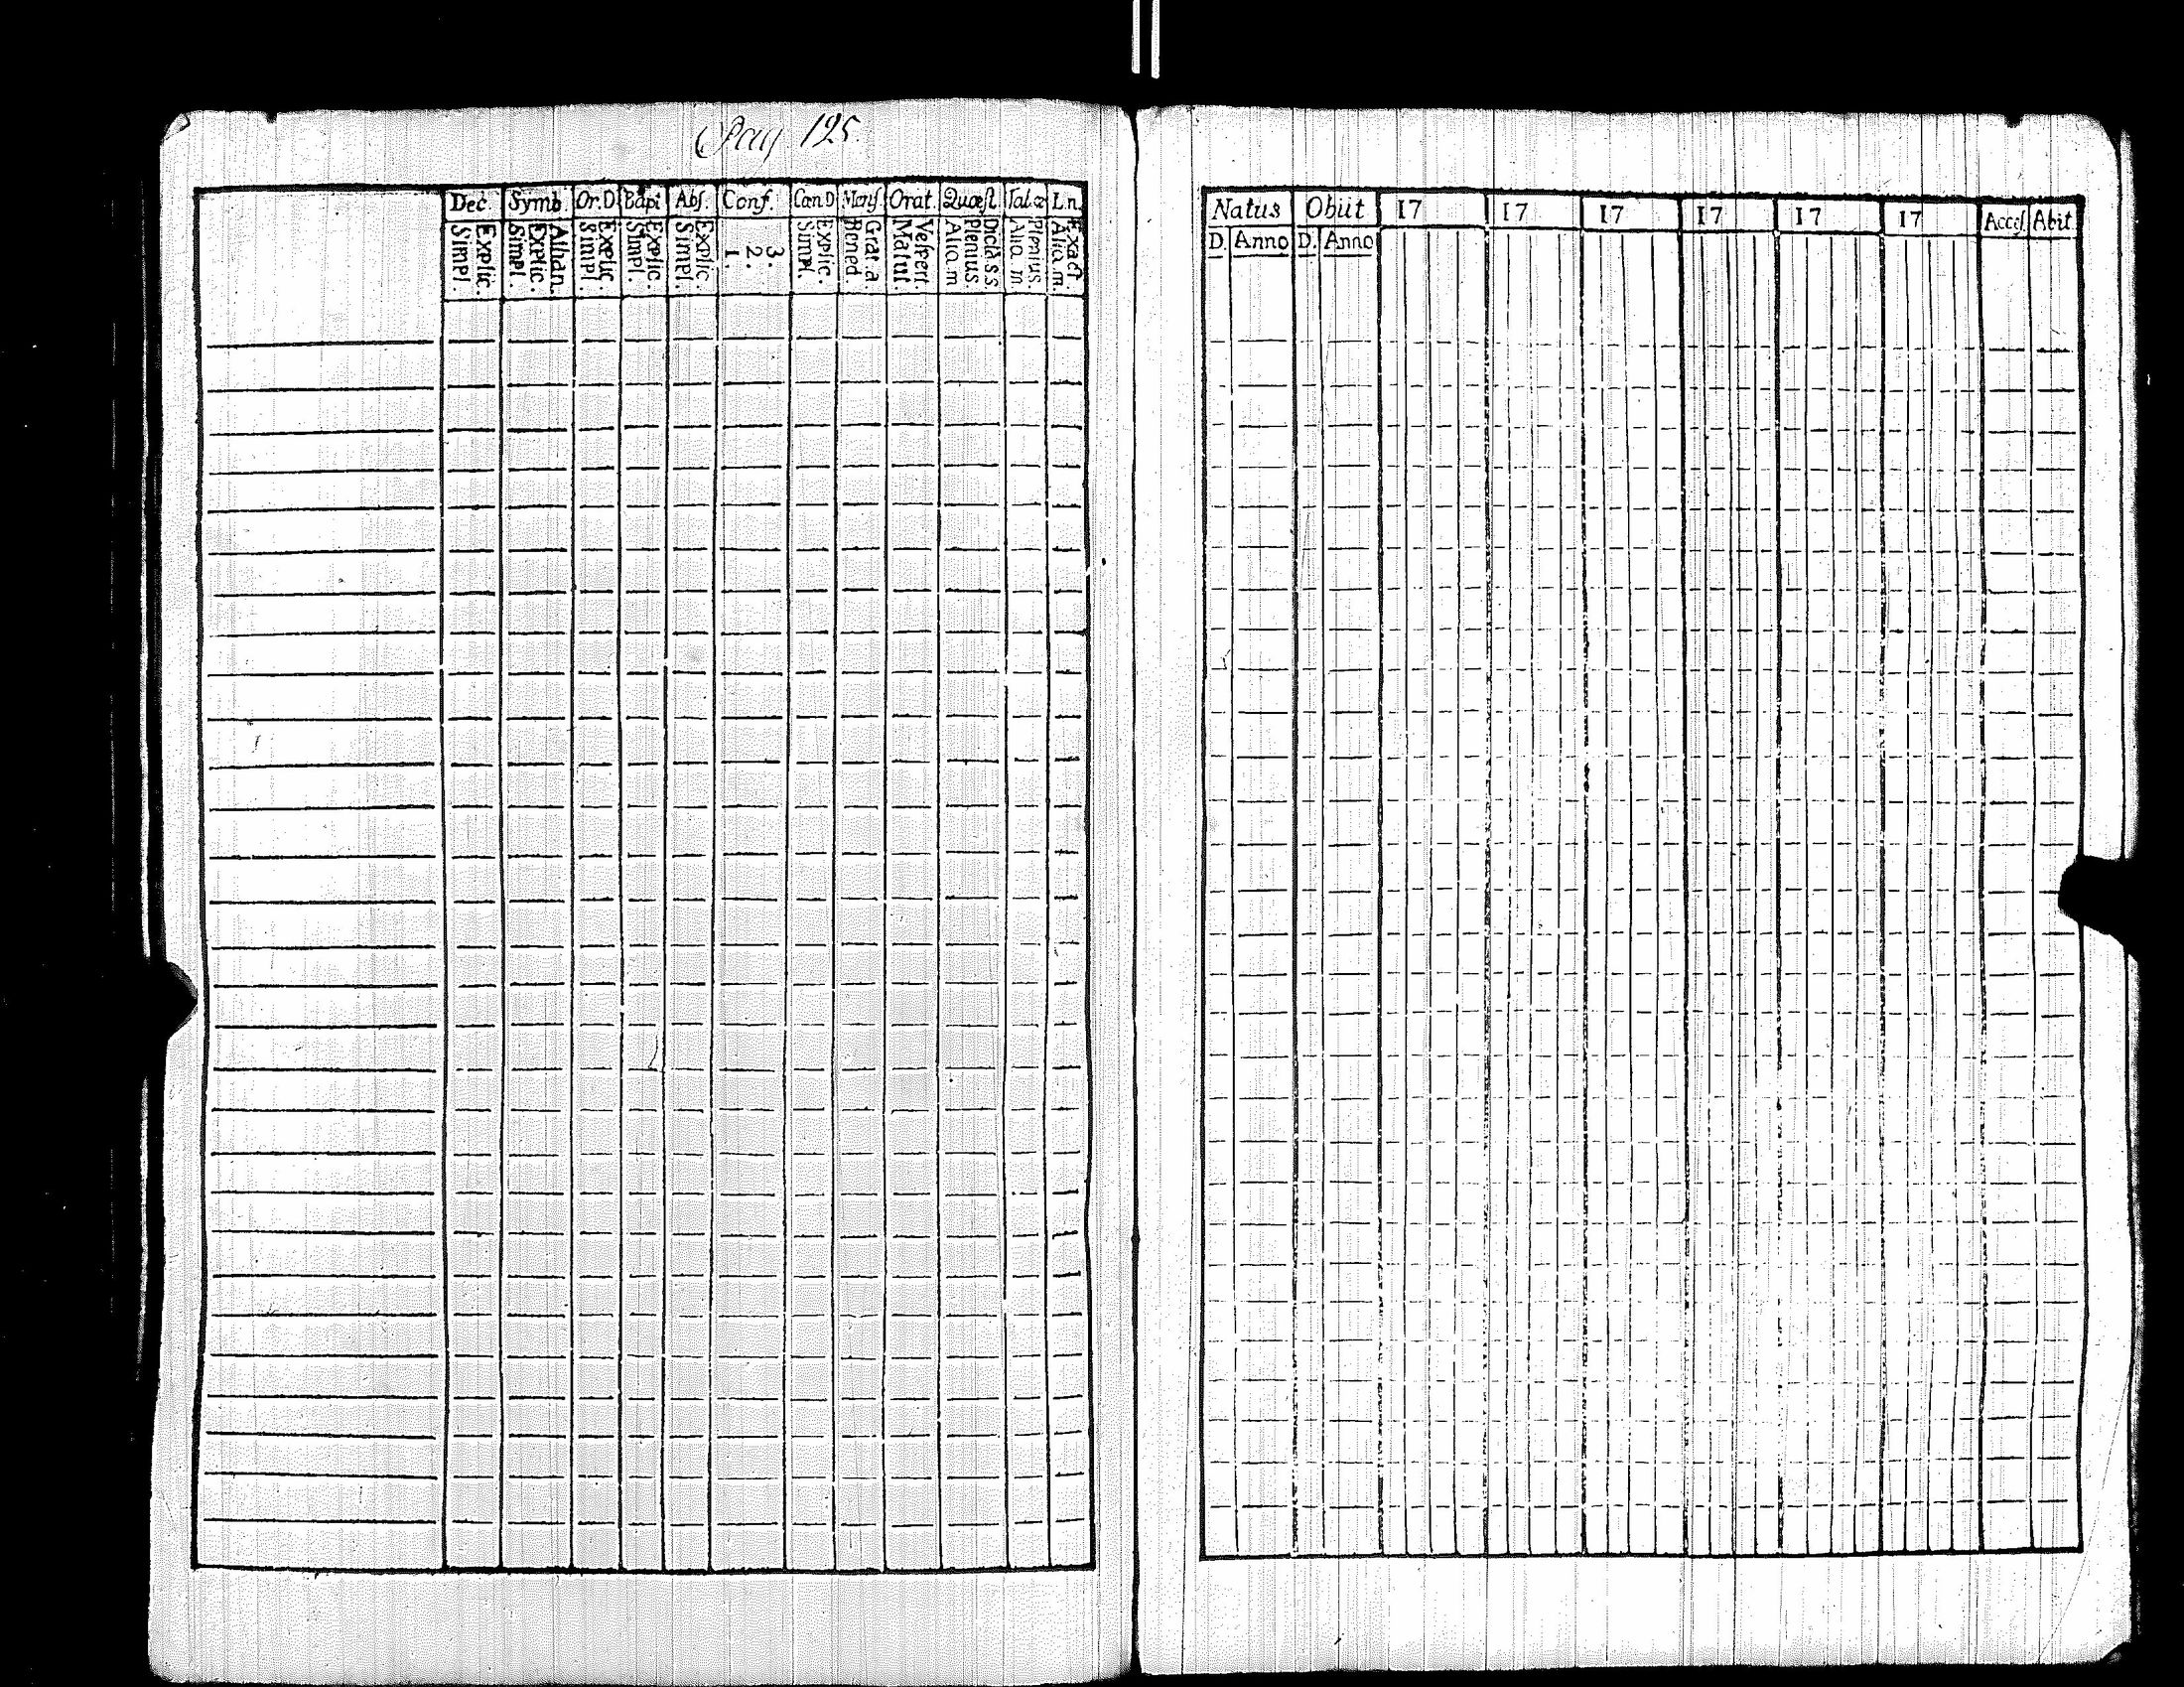 Pag 125.
Dec. Symb. Or.D. Bapt Abs. Conf. Can D Mens. Orat. Quæst. Tal.æ Ln.
Explic. Simpl.
Athan. Explic. Simpl.
Explic. Simpl.
Explic. Simpl.
Explic. Simpl.
3. 2. 1.
Explic. Simpl.
Grat. a. Bened.
Vespert. Matut.
Dict. s.s. Plenius. Aliq. m
Plenius. Aliq. m
Exact. Aliq. m.
Natus Obiit 17 17 17 17 17 17 Access. Abit
D. Anno D. Anno